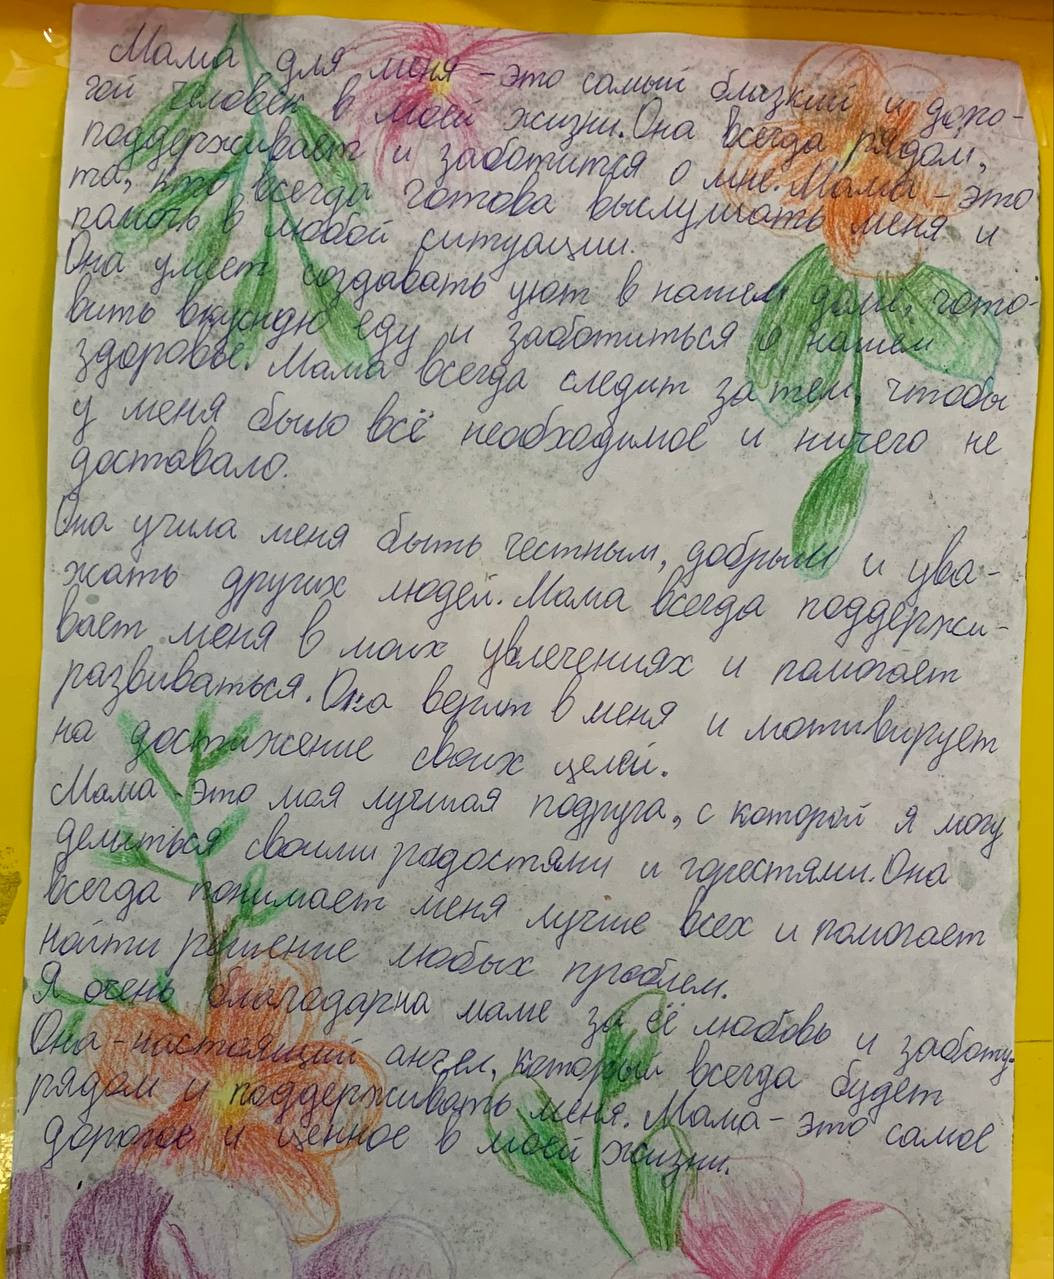 Мама для меня - это самый близкий и доро-
гой человек в моей жизни. Она всегда рядом,
поддерживает и заботится о мне. Мама - это
та, кто всегда готова выслушать меня и
помочь в любой ситуации.
Она умеет создавать уют в нашем доме, гото-
вить вкусную еду и заботиться о нашем
здоровье. Мама всегда следит за тем, чтобы
у меня было всё необходимое и ничего не
доставало.
Она учила меня быть честным, добрым и ува-
жать других людей. Мама всегда поддержи-
вает меня в моих увлечениях и помогает
развиваться. Она верит в меня и мотивирует
на достижение своих целей.
Мама - это моя лучшая подруга, с которой я могу
делиться своими радостями и горестями. Она
всегда понимает меня лучше всех и помогает
найти решение любых проблем.
Я очень благодарна маме за её любовь и заботу.
Она - настоящий ангел, который всегда будет
рядом и поддерживать меня. Мама - это самое
дорогое и ценное в моей жизни.